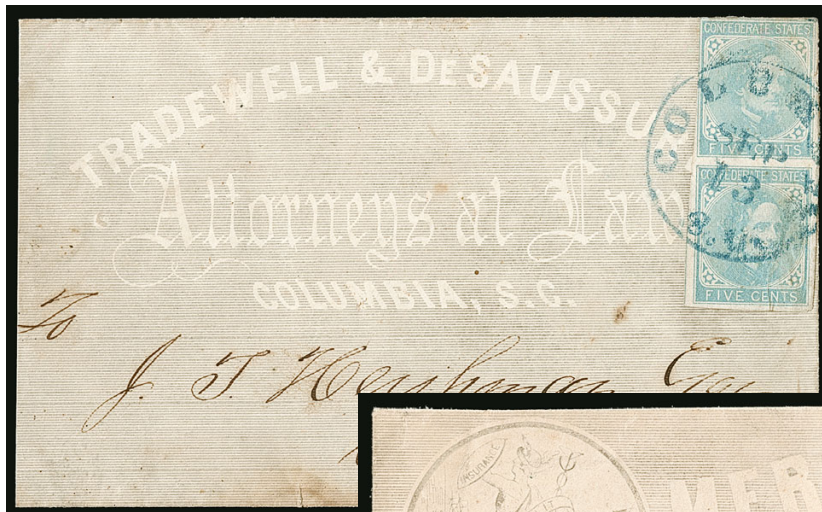 TRADEWELL & DESAUSSU
Attorneys at Law
COLUMBIA, S.C.
CONFEDERATE STATES
FIVE CENTS
CONFEDERATE STATES
FIVE CENTS
SEP
13
To
J. T.
INSURANCE
MER